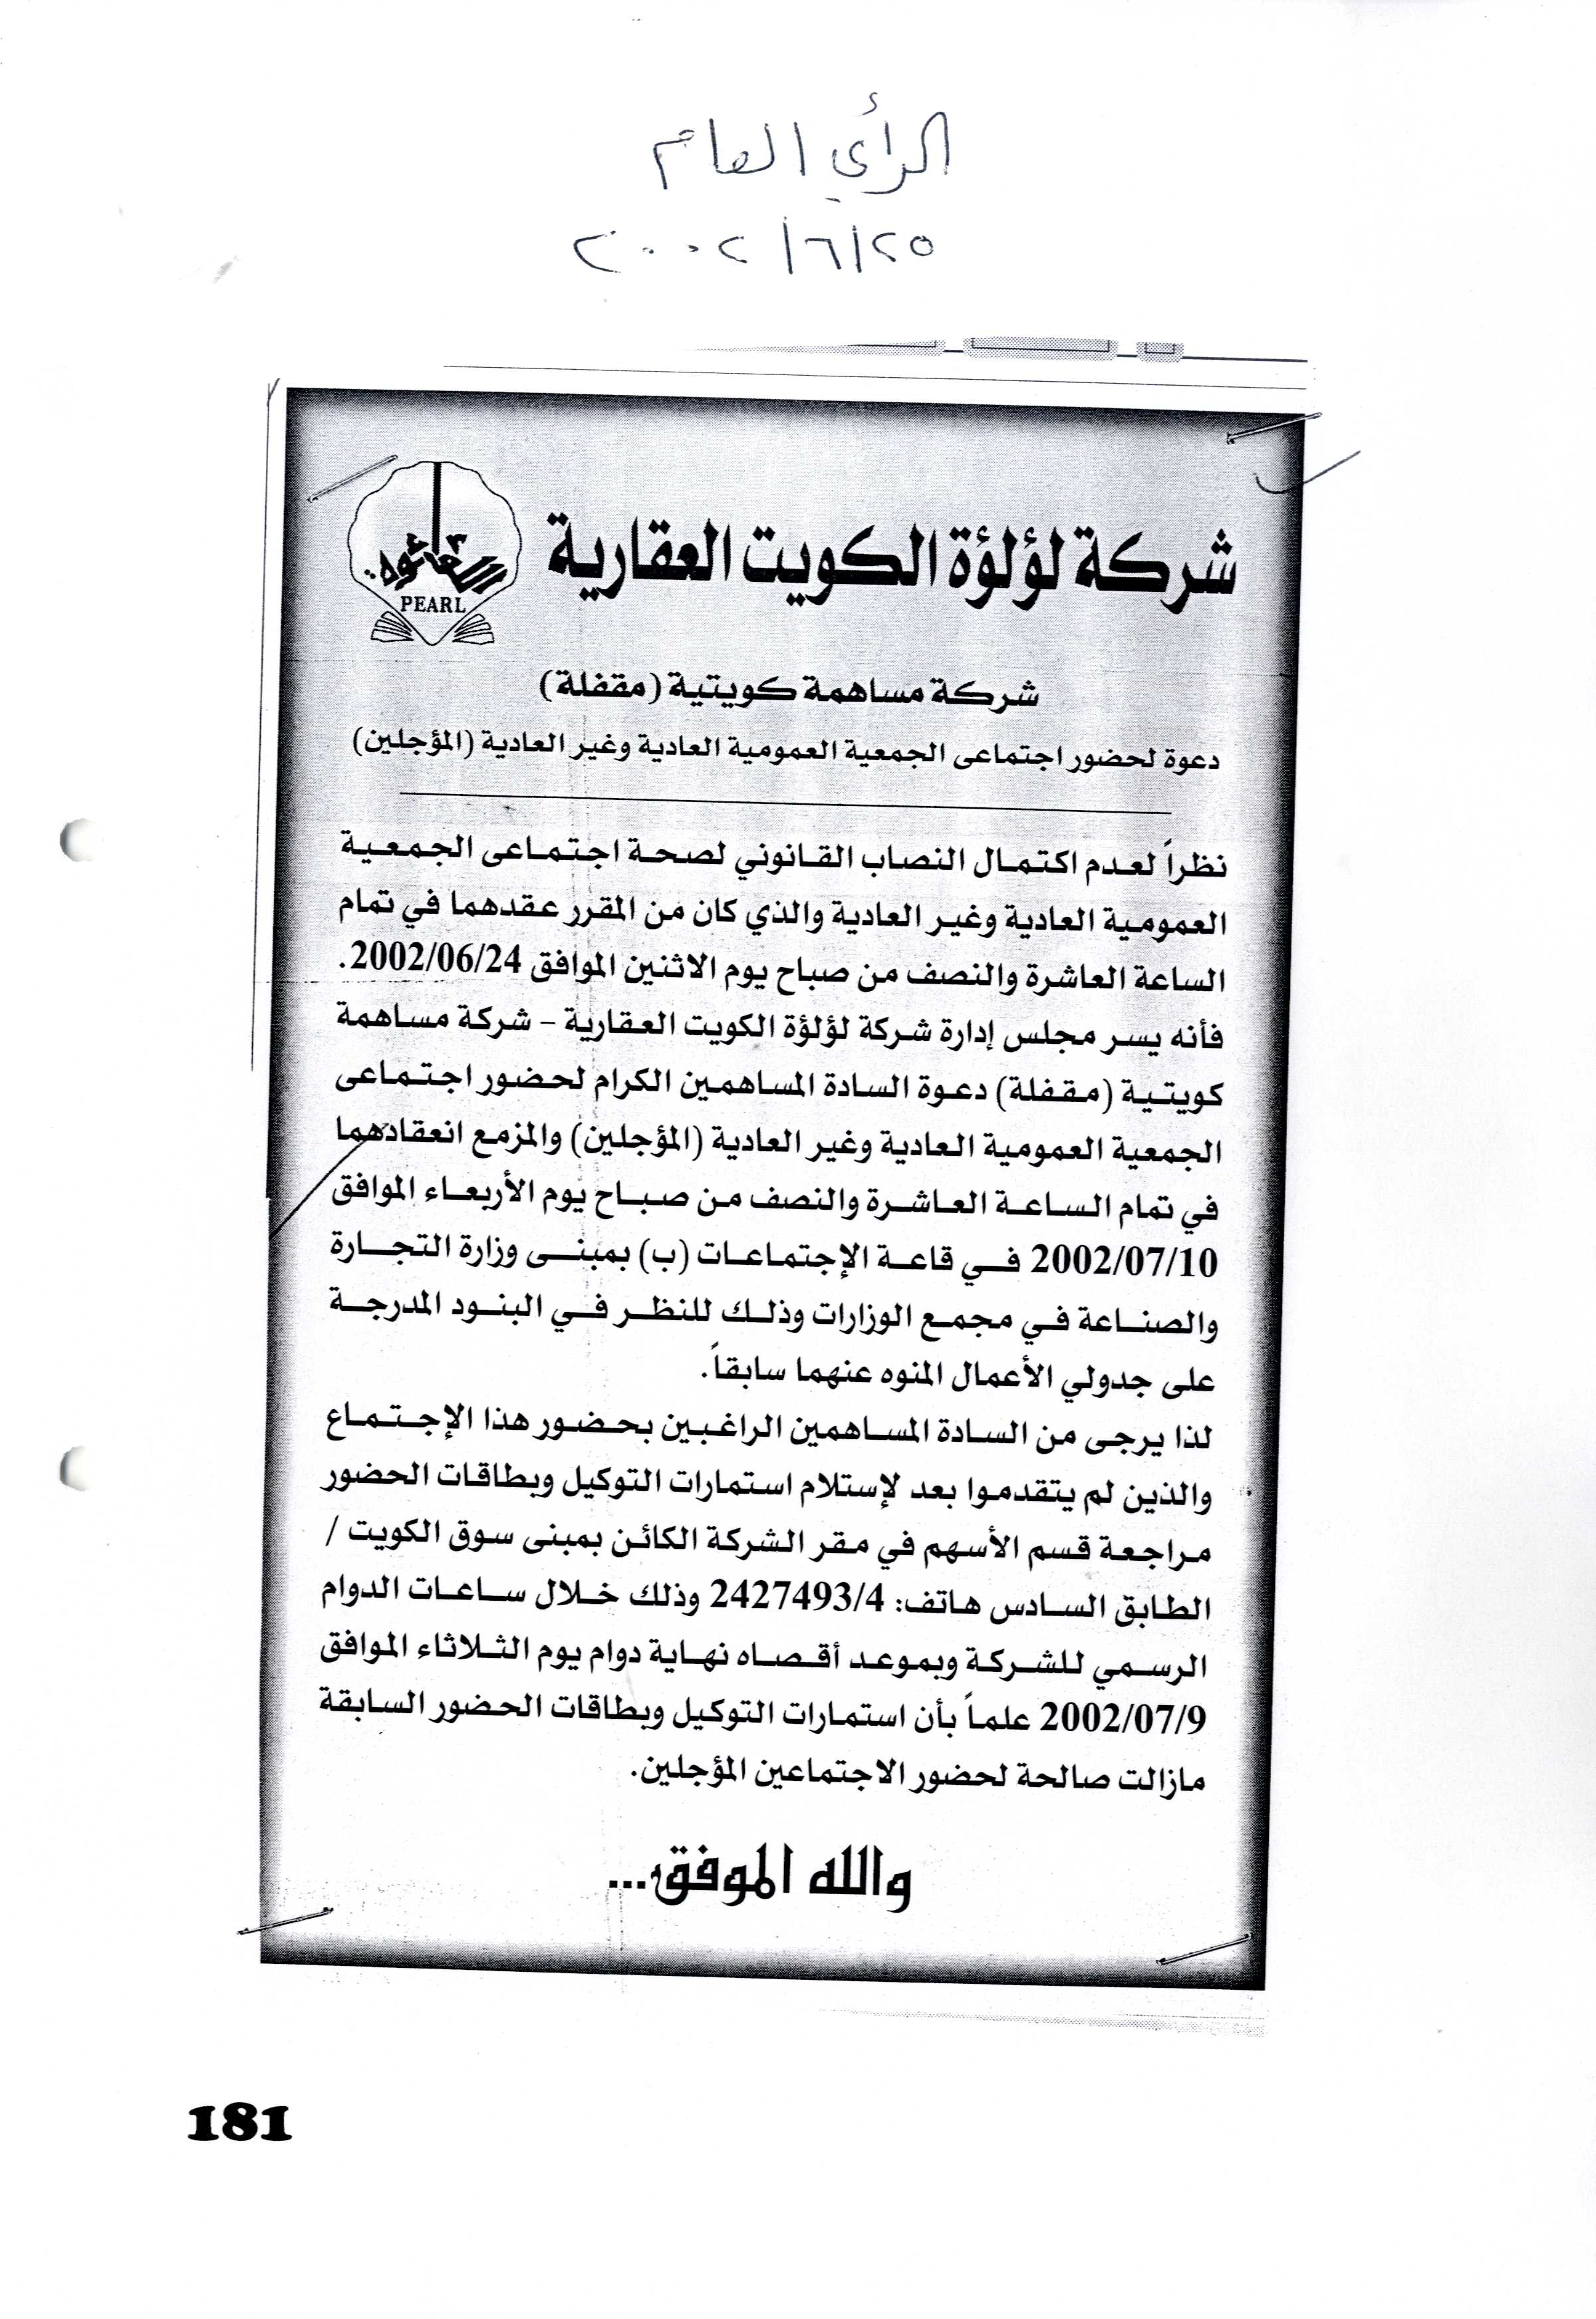 الرأي العام
٢٠٠٢/٦/٢٥
شركة لؤلؤة الكويت العقارية
PEARL
شركة مساهمة كويتية (مقفلة)
دعوة لحضور اجتماعى الجمعية العمومية العادية وغير العادية (المؤجلين)
نظراً لعدم اكتمال النصاب القانوني لصحة اجتماعى الجمعية
العمومية العادية وغير العادية والذي كان من المقرر عقدهما في تمام
الساعة العاشرة والنصف من صباح يوم الاثنين الموافق 2002/06/24.
فأنه يسر مجلس إدارة شركة لؤلؤة الكويت العقارية - شركة مساهمة
كويتية (مقفلة) دعوة السادة المساهمين الكرام لحضور اجتماعى
الجمعية العمومية العادية وغير العادية (المؤجلين) والمزمع انعقادهما
في تمام الساعة العاشرة والنصف من صباح يوم الأربعاء الموافق
2002/07/10 في قاعة الإجتماعات (ب) بمبنى وزارة التجارة
والصناعة في مجمع الوزارات وذلك للنظر في البنود المدرجة
على جدولي الأعمال المنوه عنهما سابقاً.
لذا يرجى من السادة المساهمين الراغبين بحضور هذا الإجتماع
والذين لم يتقدموا بعد لإستلام استمارات التوكيل وبطاقات الحضور
مراجعة قسم الأسهم في مقر الشركة الكائن بمبنى سوق الكويت /
الطابق السادس هاتف: 2427493/4 وذلك خلال ساعات الدوام
الرسمي للشركة وبموعد أقصاه نهاية دوام يوم الثلاثاء الموافق
2002/07/9 علماً بأن استمارات التوكيل وبطاقات الحضور السابقة
مازالت صالحة لحضور الاجتماعين المؤجلين.
والله الموفق...
181